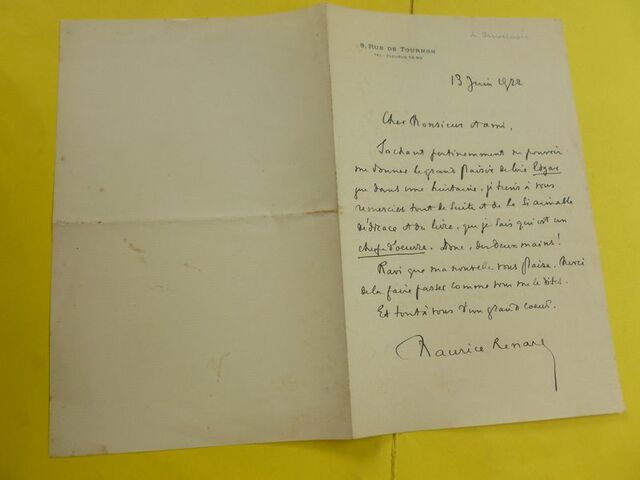 9, RUE DE TOURNON
TÉL: FLEURUS
13 Juin 1922
Cher Monsieur et ami,
Sachant pertinemment ne pouvoir
me donner le grand plaisir de lire Edgar
que dans une huitaine, je tiens à vous
remercier tout de suite et de la si aimable
dédicace et du livre, que je sais qui est un
chef-d'oeuvre. Donc, des deux mains!
Ravi que ma nouvelle vous plaise. Merci
de la faire passer comme vous me le dites.
Et tout à vous d'un grand coeur.
Maurice Renard